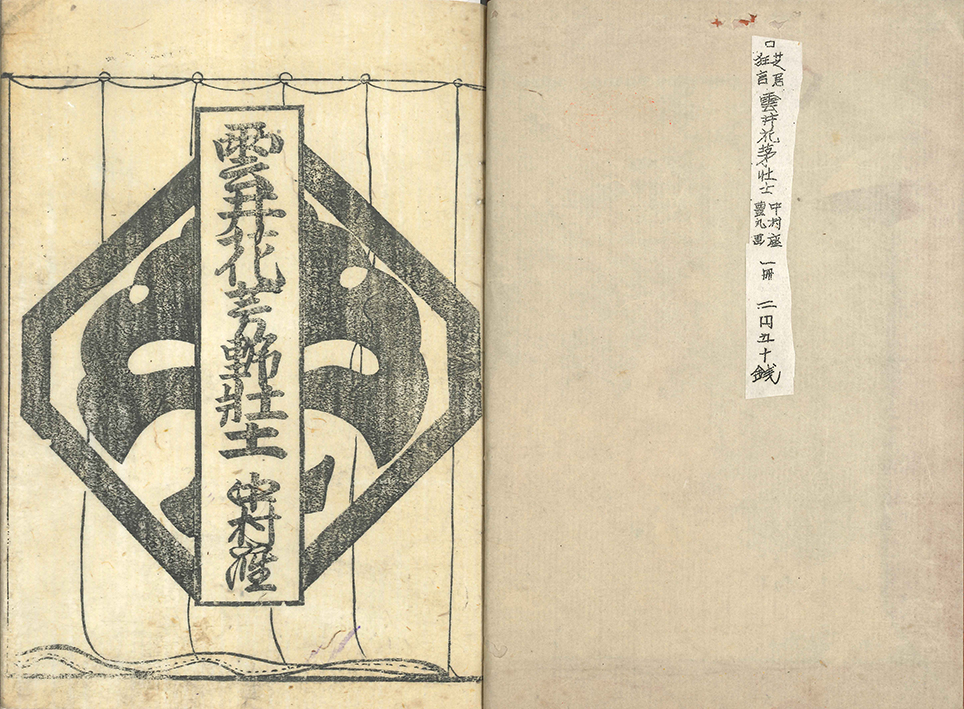 口
芝居
狂言
雲井花芳壮士
中村座
豊丸画
一冊
二円五十銭
雲井花芳野壮士 中村座